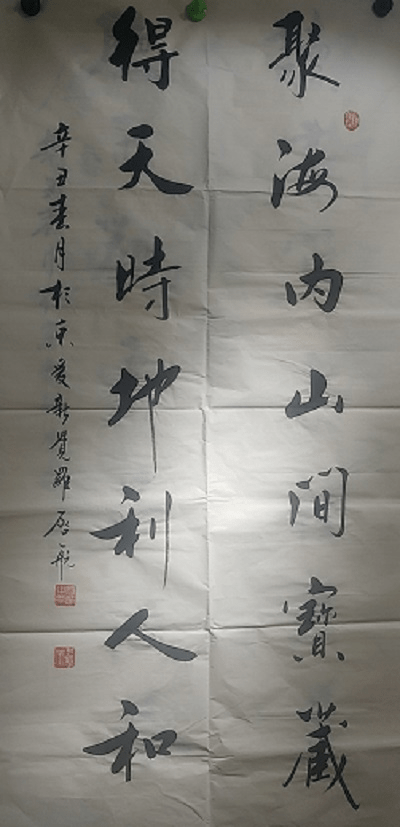 聚海内山间寶藏
得天時地利人和
辛丑春月於京愛新覺羅啟航